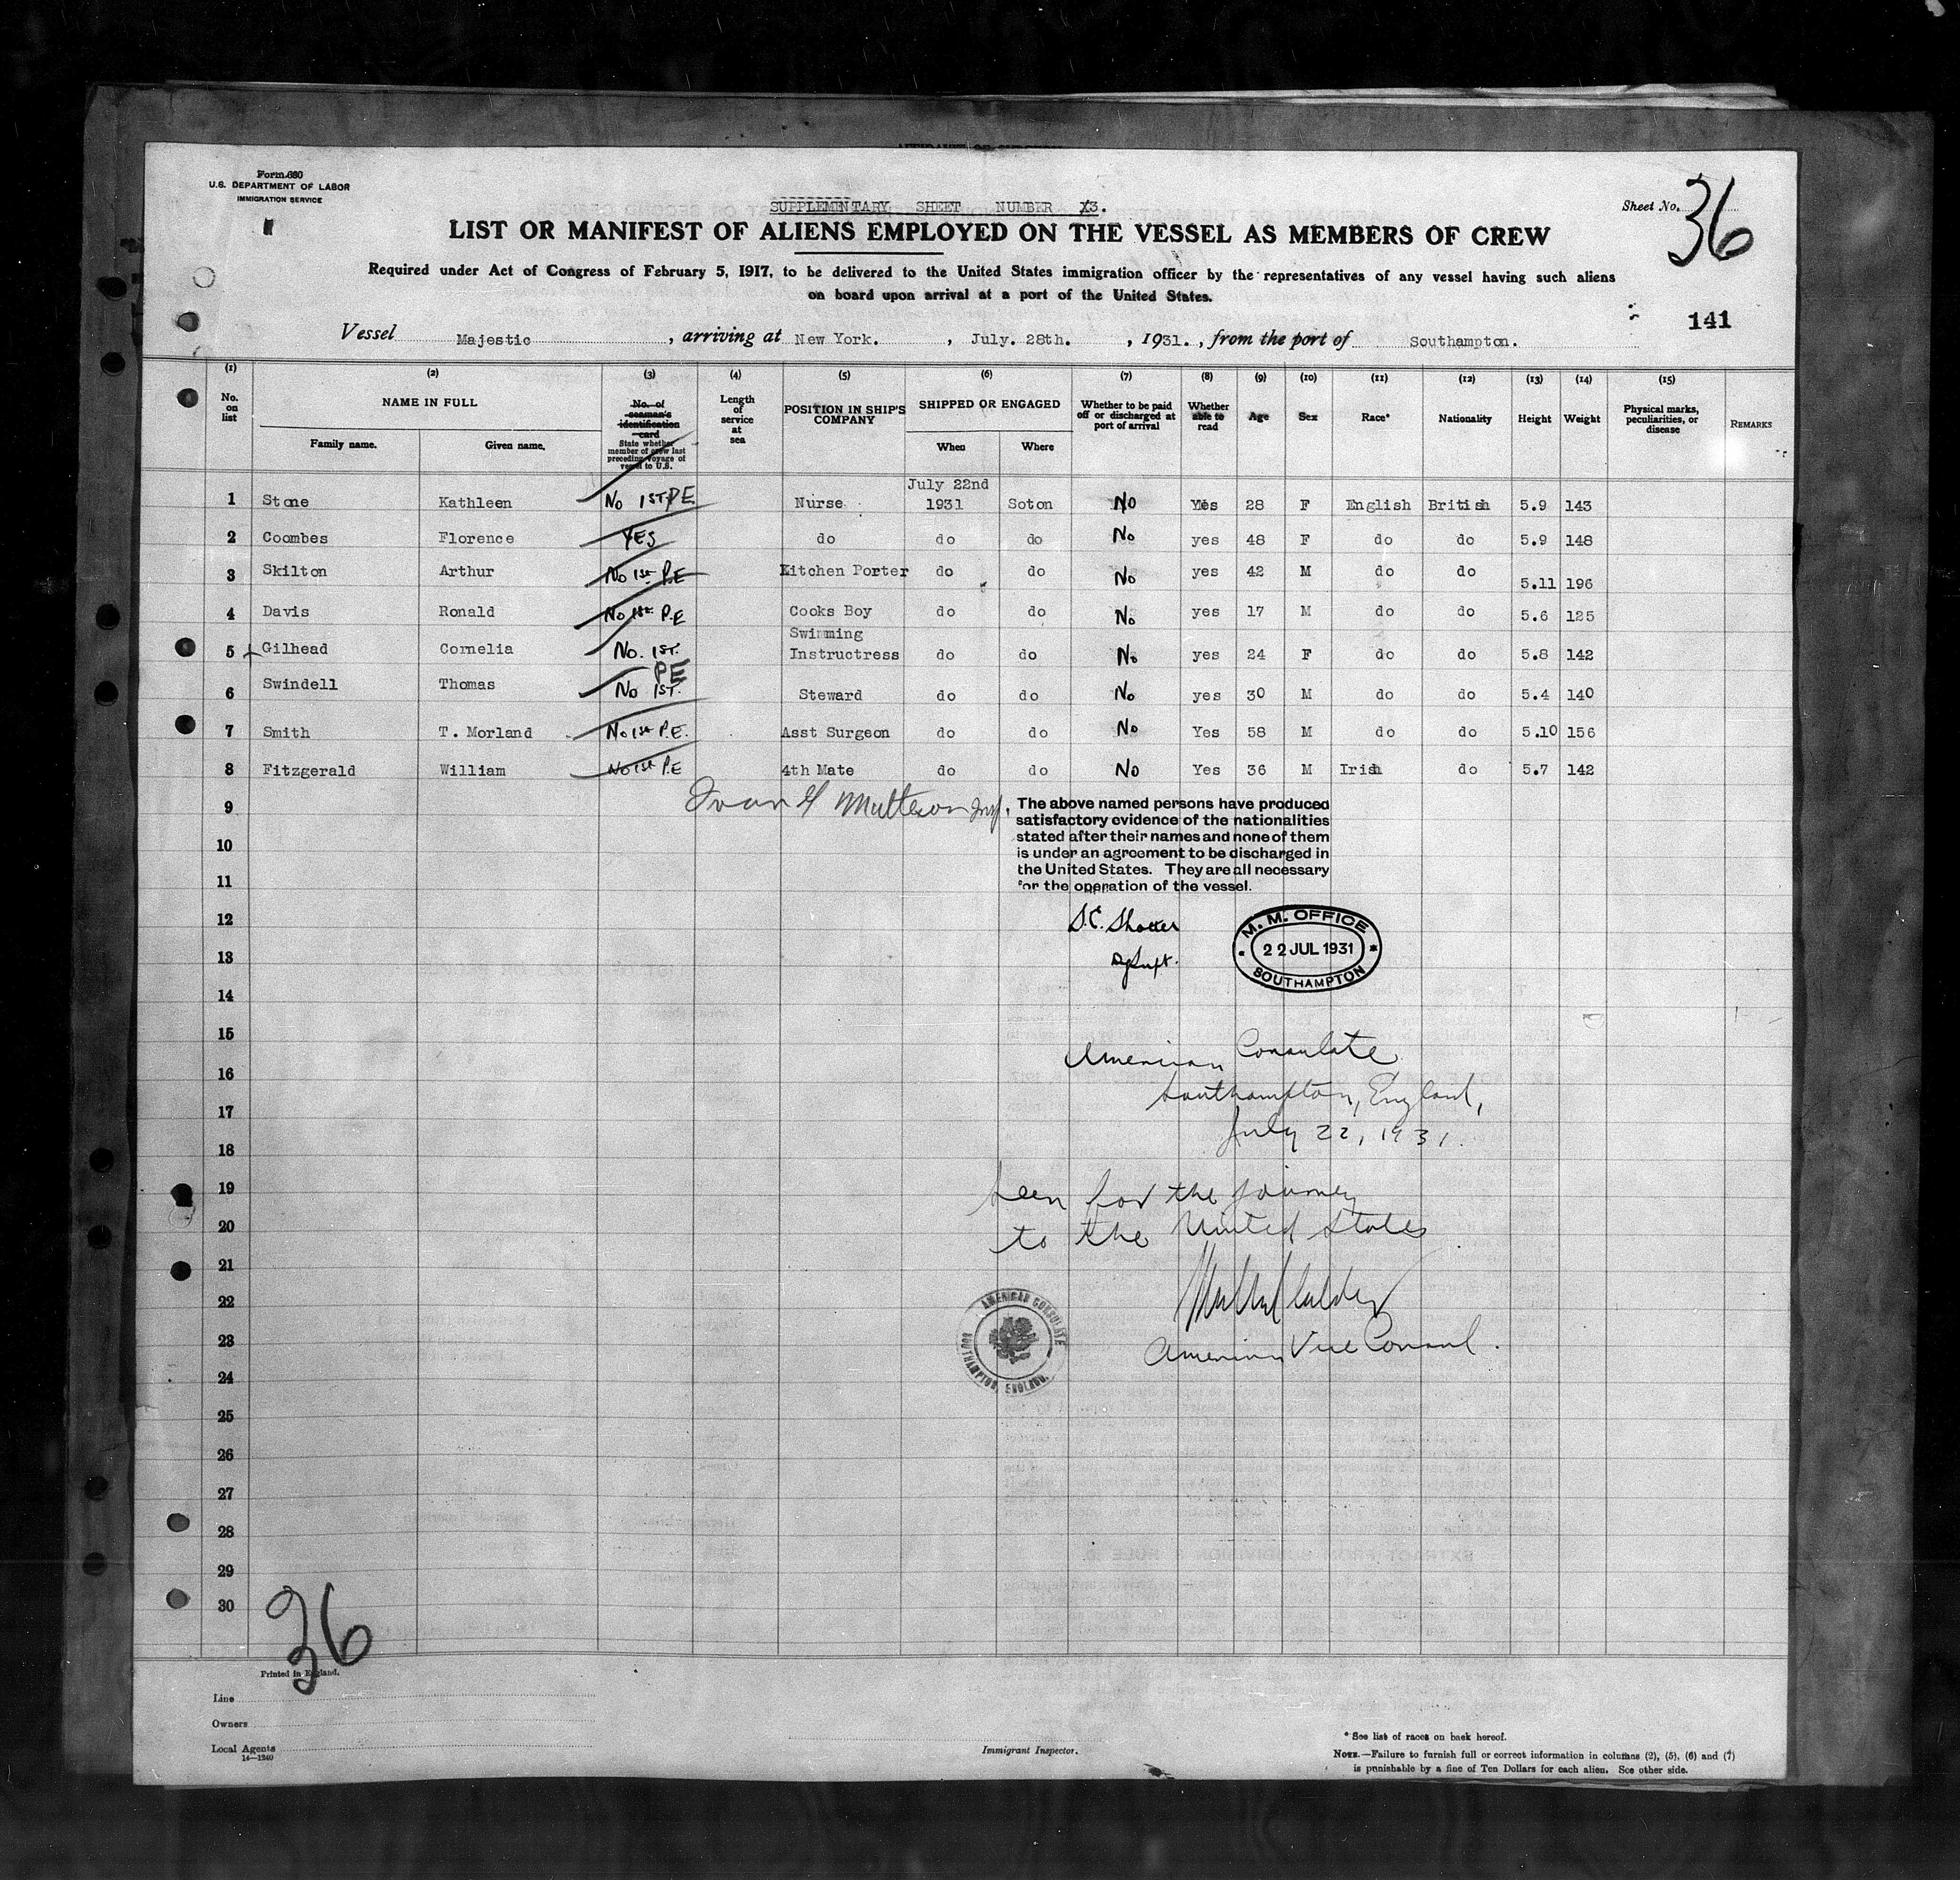 Form 680
U.S. DEPARTMENT OF LABOR
IMMIGRATION SERVICE
SUPPLEMENTARY SHEET NUMBER X3.
Sheet No. 36
LIST OR MANIFEST OF ALIENS EMPLOYED ON THE VESSEL AS MEMBERS OF CREW
Required under Act of Congress of February 5, 1917, to be delivered to the United States immigration officer by the representatives of any vessel having such aliens
on board upon arrival at a port of the United States.
141
Vessel Majestic , arriving at New York. , July. 28th. , 1931. , from the port of Southampton.
(1) (2) (3) (4) (5) (6) (7) (8) (9) (10) (11) (12) (13) (14) (15)
No. on list NAME IN FULL Family name. Given name. No. of seaman's identification card State whether member of crew last preceding voyage of vessel to U.S. Length of service at sea POSITION IN SHIP'S COMPANY SHIPPED OR ENGAGED When Where Whether to be paid off or discharged at port of arrival Whether able to read Age Sex Race* Nationality Height Weight Physical marks, peculiarities, or disease REMARKS
1 Stone Kathleen No 1ST PE Nurse July 22nd 1931 Soton No Yes 28 F English British 5.9 143
2 Coombes Florence YES do do do No yes 48 F do do 5.9 148
3 Skilton Arthur No 1st P.E Kitchen Porter do do No yes 42 M do do 5.11 196
4 Davis Ronald No 1st P.E Cooks Boy do do No yes 17 M do do 5.6 125
5 Gilhead Cornelia No. 1ST. PE Swimming Instructress do do No yes 24 F do do 5.8 142
6 Swindell Thomas No 1ST. Steward do do No yes 30 M do do 5.4 140
7 Smith T. Morland No 1st P.E. Asst Surgeon do do No Yes 58 M do do 5.10 156
8 Fitzgerald William No 1st P.E 4th Mate do do No Yes 36 M Irish do 5.7 142
9
The above named persons have produced
satisfactory evidence of the nationalities
stated after their names and none of them
10
is under an agreement to be discharged in
the United States. They are all necessary
11
for the operation of the vessel.
12
M. M. OFFICE
22 JUL 1931
SOUTHAMPTON
13
14
15
American Consulate
16
Southampton, England,
17
July 22, 1931.
18
19
Seen for the journey
20
to the United States
21
22
AMERICAN CONSULATE
SOUTHAMPTON, ENGLAND.
23
American Vice Consul.
24
25
26
27
28
29
30
36
Printed in England.
Line
Owners
Local Agents
14—1240
Immigrant Inspector.
* See list of races on back hereof.
NOTE.—Failure to furnish full or correct information in columns (2), (5), (6) and (7)
is punishable by a fine of Ten Dollars for each alien. See other side.